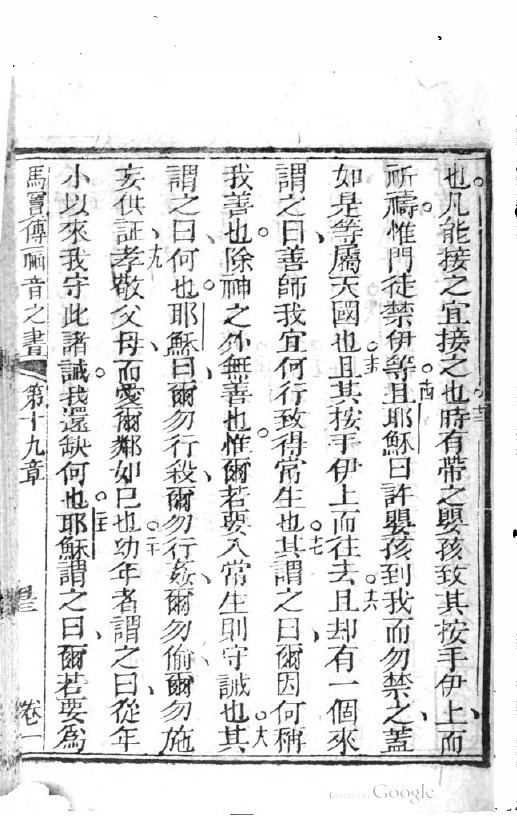 也凡能接之宜接之也十三時有帶之嬰孩致其按手伊上而
祈禱惟門徒禁伊等十四且耶穌曰許嬰孩到我而勿禁之蓋
如是等屬天國也十五且其按手伊上而往去十六且却有一個來
謂之曰善師我宜何行致得常生也十七其謂之曰爾因何稱
我善也除神之外無善也惟爾若要入常生則守誡也十八其
謂之曰何也耶穌曰爾勿行殺爾勿行姦爾勿偷爾勿施
妄供証十九孝敬父母而愛爾鄰如己也二十幼年者謂之曰從年
小以來我守此諸誡我還缺何也二十一耶穌謂之曰爾若要為
馬竇傳福音之書 第十九章 卷一
Google